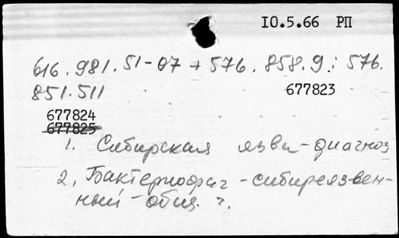 10.5.66 РП
616.981.51-07 + 576.858.9 : 576.
851.511
677823
677824
677825
1. Сибирская язва-диагноз
2. Бактериофаг-сибиреязвен-
ный-общ. ч.